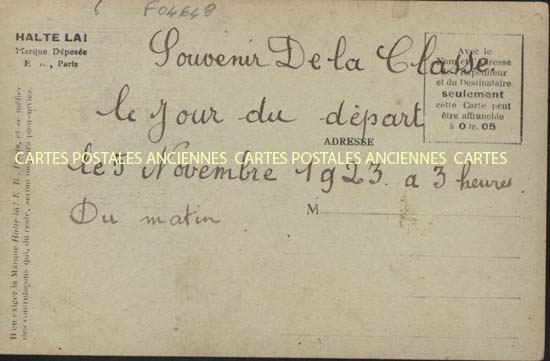 F04648
HALTE LA!
Marque Déposée
E. R., Paris
Souvenir De la Classe.
le Jour du départ
le 5 Novembre 1923. a 3 heures
Du matin
Avec le
Nom et l'Adresse
de l'Expéditeur
et du Destinataire
seulement
cette Carte peut
être affranchie
à 0 fr. 05
ADRESSE
CARTES POSTALES ANCIENNES CARTES POSTALES ANCIENNES CARTES
M
Il en exiger la Marque Halte là! E. R., Paris, et se méfier
des contrefaçons qui, du reste, seront toutes poursuivies.